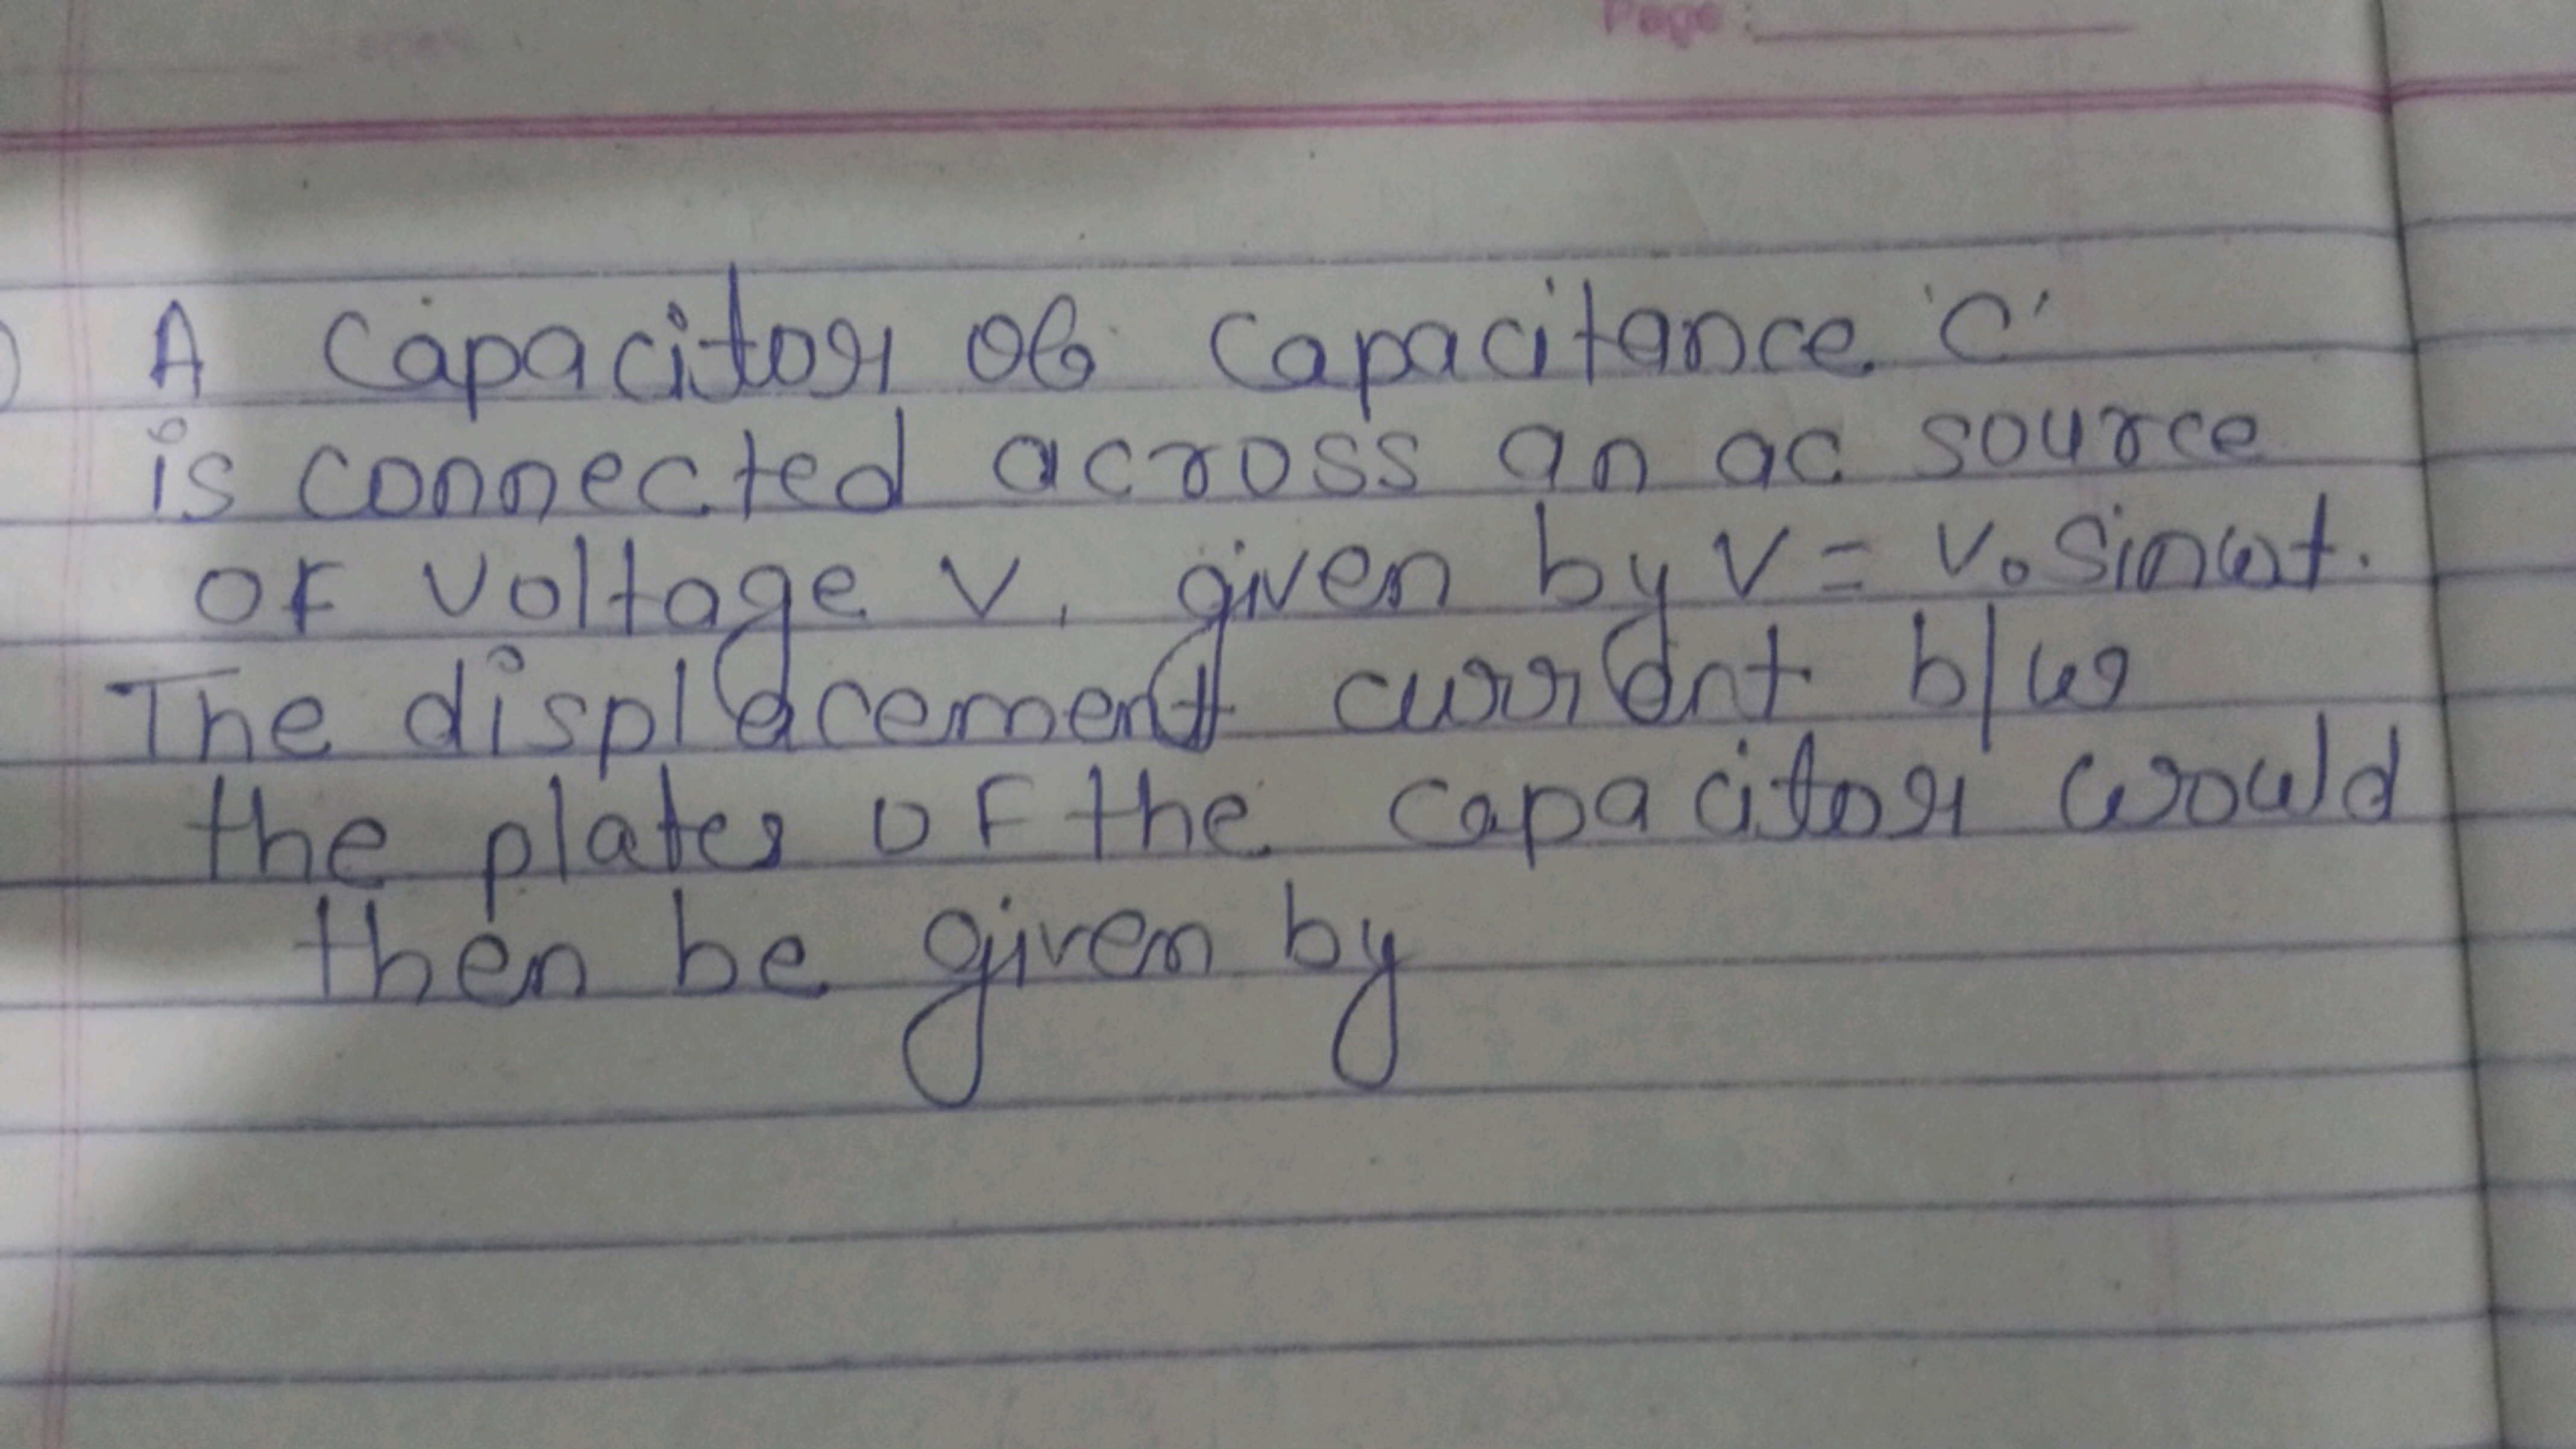 Page :
A Capacitor of Capacitance 'C'
is connected across an ac source
of voltage V, given by V = V₀ sinωt.
The displacement current b/w
the plates of the capacitor would
then be given by